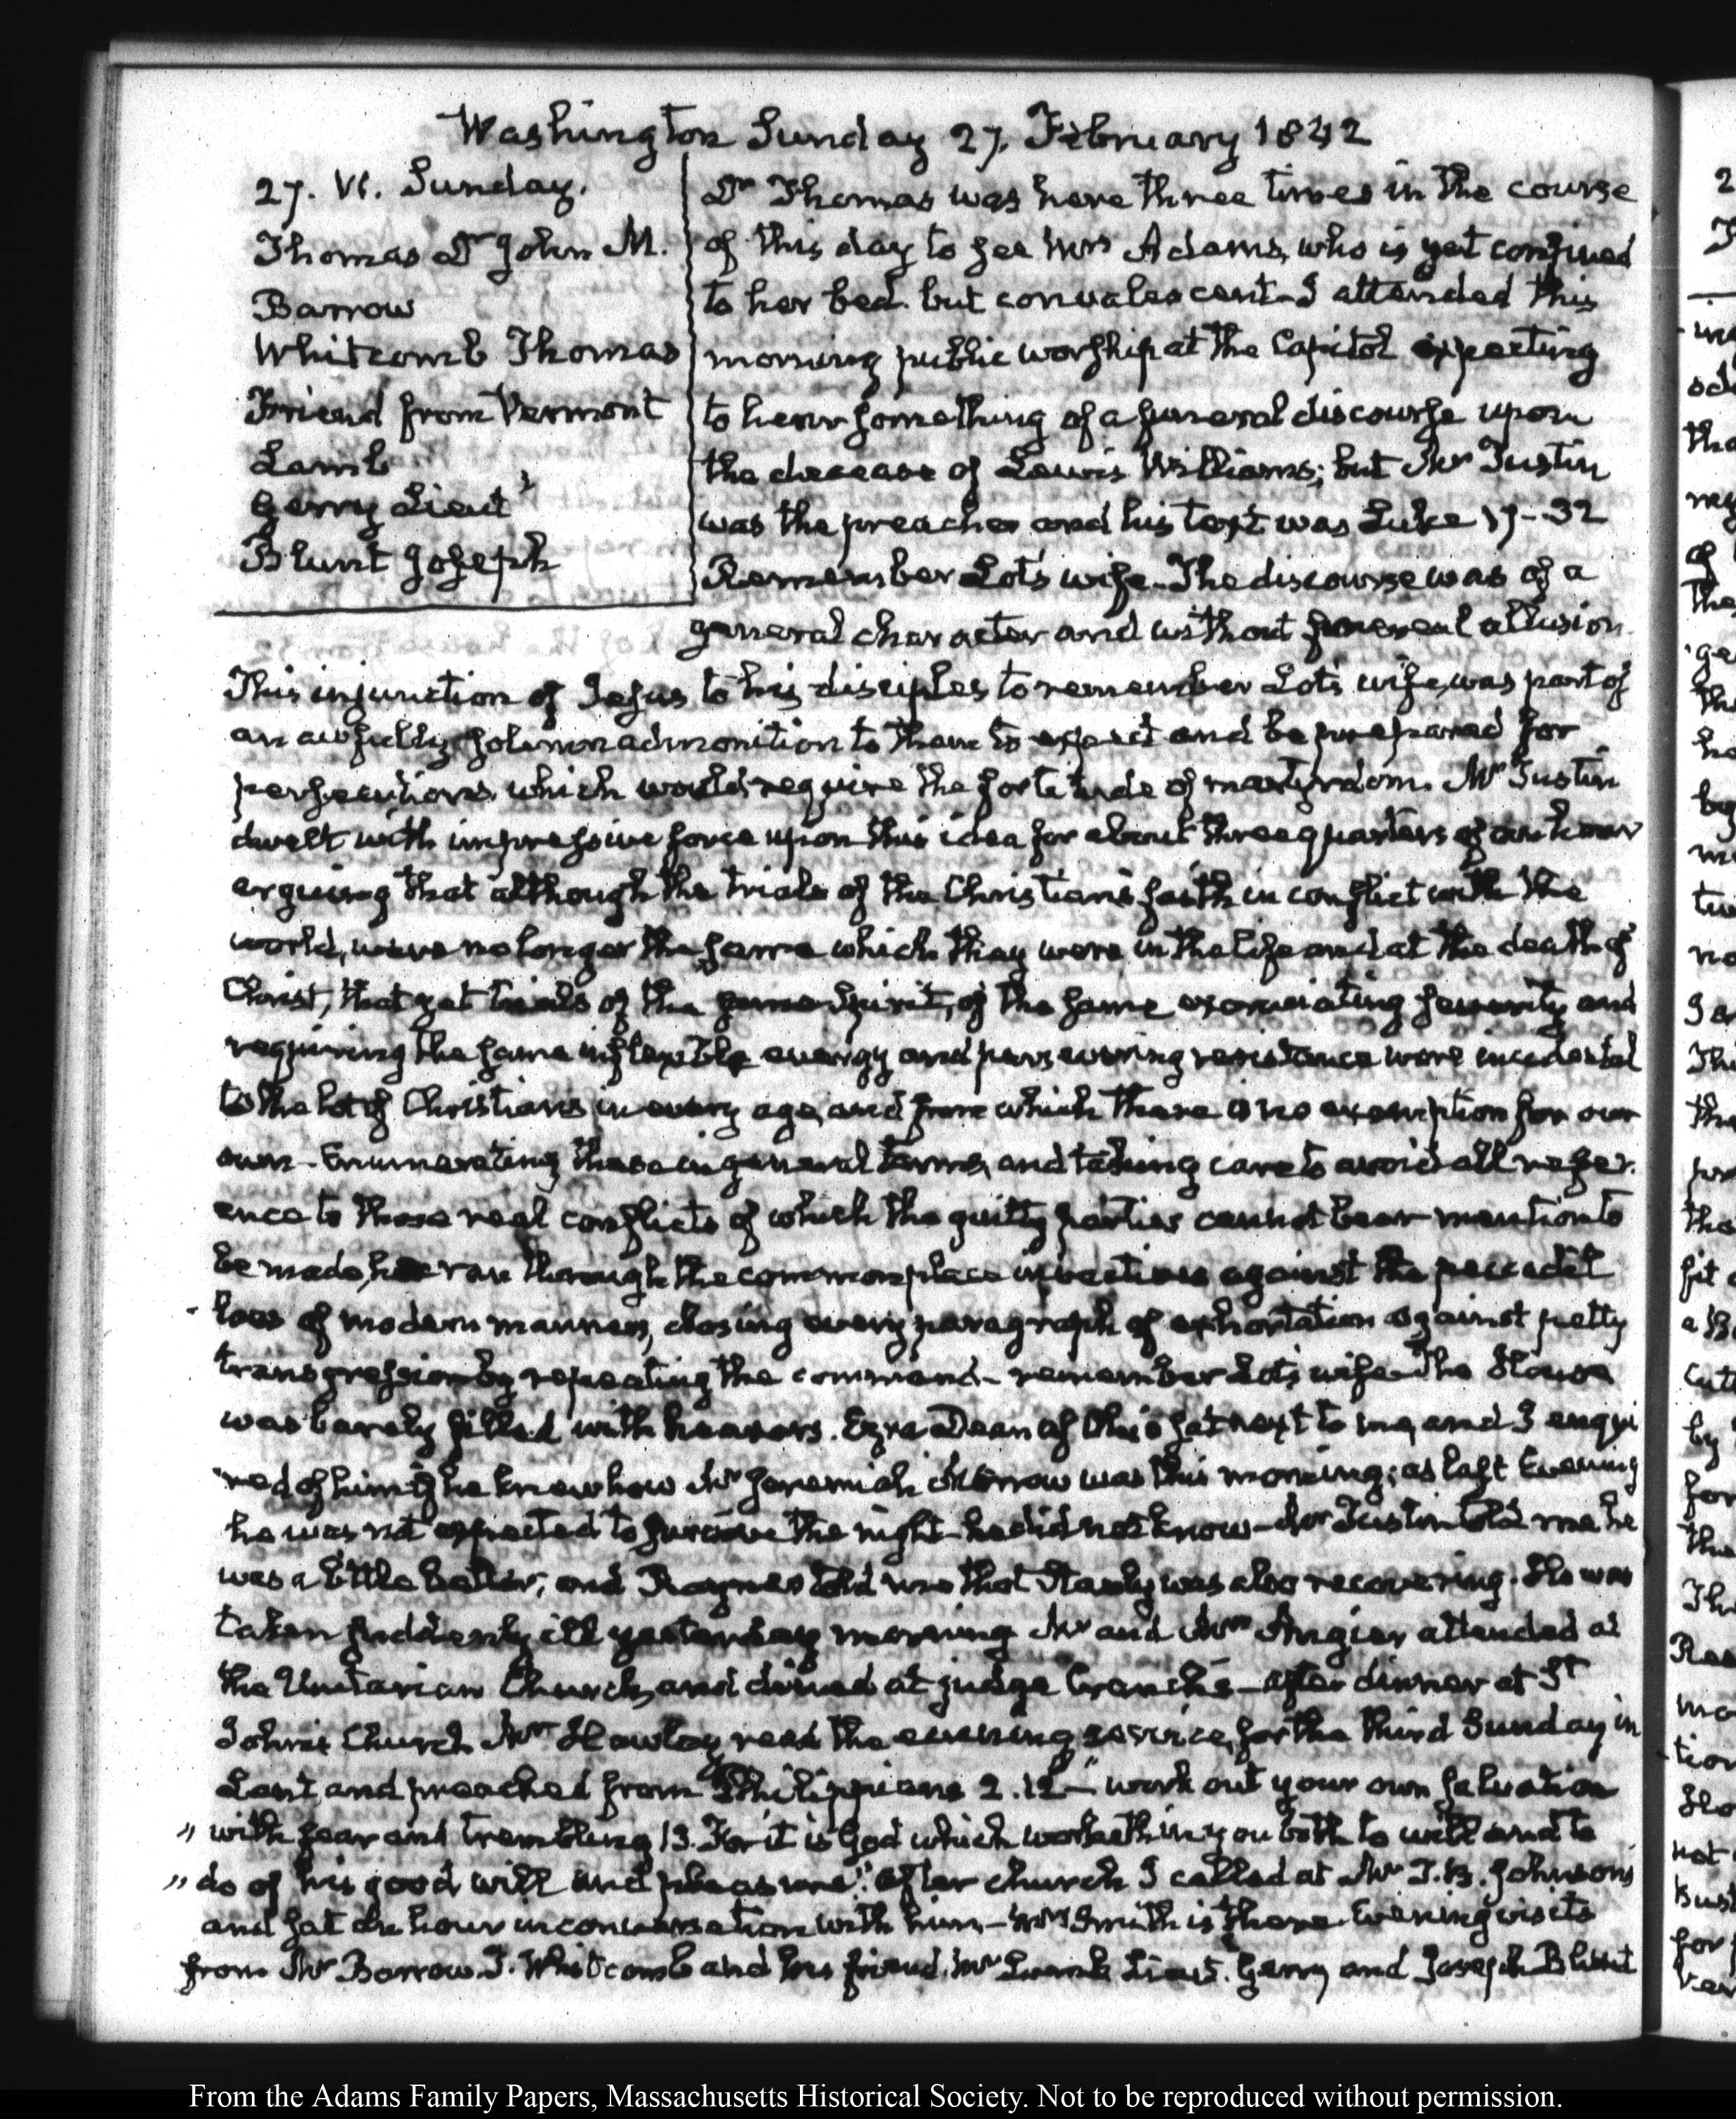 Washington Sunday 27. February 1842
27. VI. Sunday.
Thomas Dr John M.
Barrow
Whitcomb Thomas
Friend from Vermont
Lamb
Gerry Lieut
Blunt Joseph
Dr Thomas was here three times in the course
of this day to see Mrs Adams, who is yet confined
to her bed. but convalescent—I attended this
morning public worship at the Capitol expecting
to hear something of a funeral discourse upon
the decease of Lewis Williams; but Mr Tustin
was the preacher and his text was Luke 17-32
Remember Lot's wife—The discourse was of a
general character and without funereal allusion
This injunction of Jesus to his disciples to remember Lot's wife, was part of
an awfully solemn admonition to them to expect and be prepared for
persecutions, which would require the fortitude of martyrdom. Mr Tustin
dwelt with impressive force upon this idea for about three quarters of an hour
arguing that although the trials of the Christian's faith in conflict with the
world, were no longer the same which they were in the life and at the death of
Christ, that yet trials of the same Spirit, of the same excruciating severity and
requiring the same inflexible energy and persevering resistance were incidental
to the lot of Christians in every age, and from which there is no exemption for our
own—Enumerating these in general terms, and taking care to avoid all refer-
ence to those real conflicts of which the guilty parties cannot bear mention to
be made, he ran through the common place invectives against the peccadil
-loes of modern manners, closing every paragraph of exhortation against petty
transgression by repeating the command—remember Lot's wife—The House
was barely filled with hearers. Ezra Dean of Ohio sat next to me, and I enqui
red of him if he knew how Mr Jeremiah Morrow was this morning; as last Evening
he was not expected to survive the night—he did not know—Mr Tustin told me he
was a little better; and Rayner told me that Stanly was also recovering. He was
taken suddenly ill yesterday morning Mr and Mrs Angier attended at
the Unitarian Church, and dined at judge Cranch's—after dinner at St
John's Church Mr Hawley read the evening service, for the third Sunday in
Lent and preached from Philippians 2.12—"work out your own salvation
" with fear and trembling 13. For it is God which worketh in you both to will and to
" do of his good will and pleasure." After church I called at Mr T. B. Johnson's
and sat an hour in conversation with him—Mrs Smith is there. Evening visits
from Mr Barrow. T. Whitcomb and his friend. Mr Lamb Lieut. Gerry and Joseph Blunt
From the Adams Family Papers, Massachusetts Historical Society. Not to be reproduced without permission.